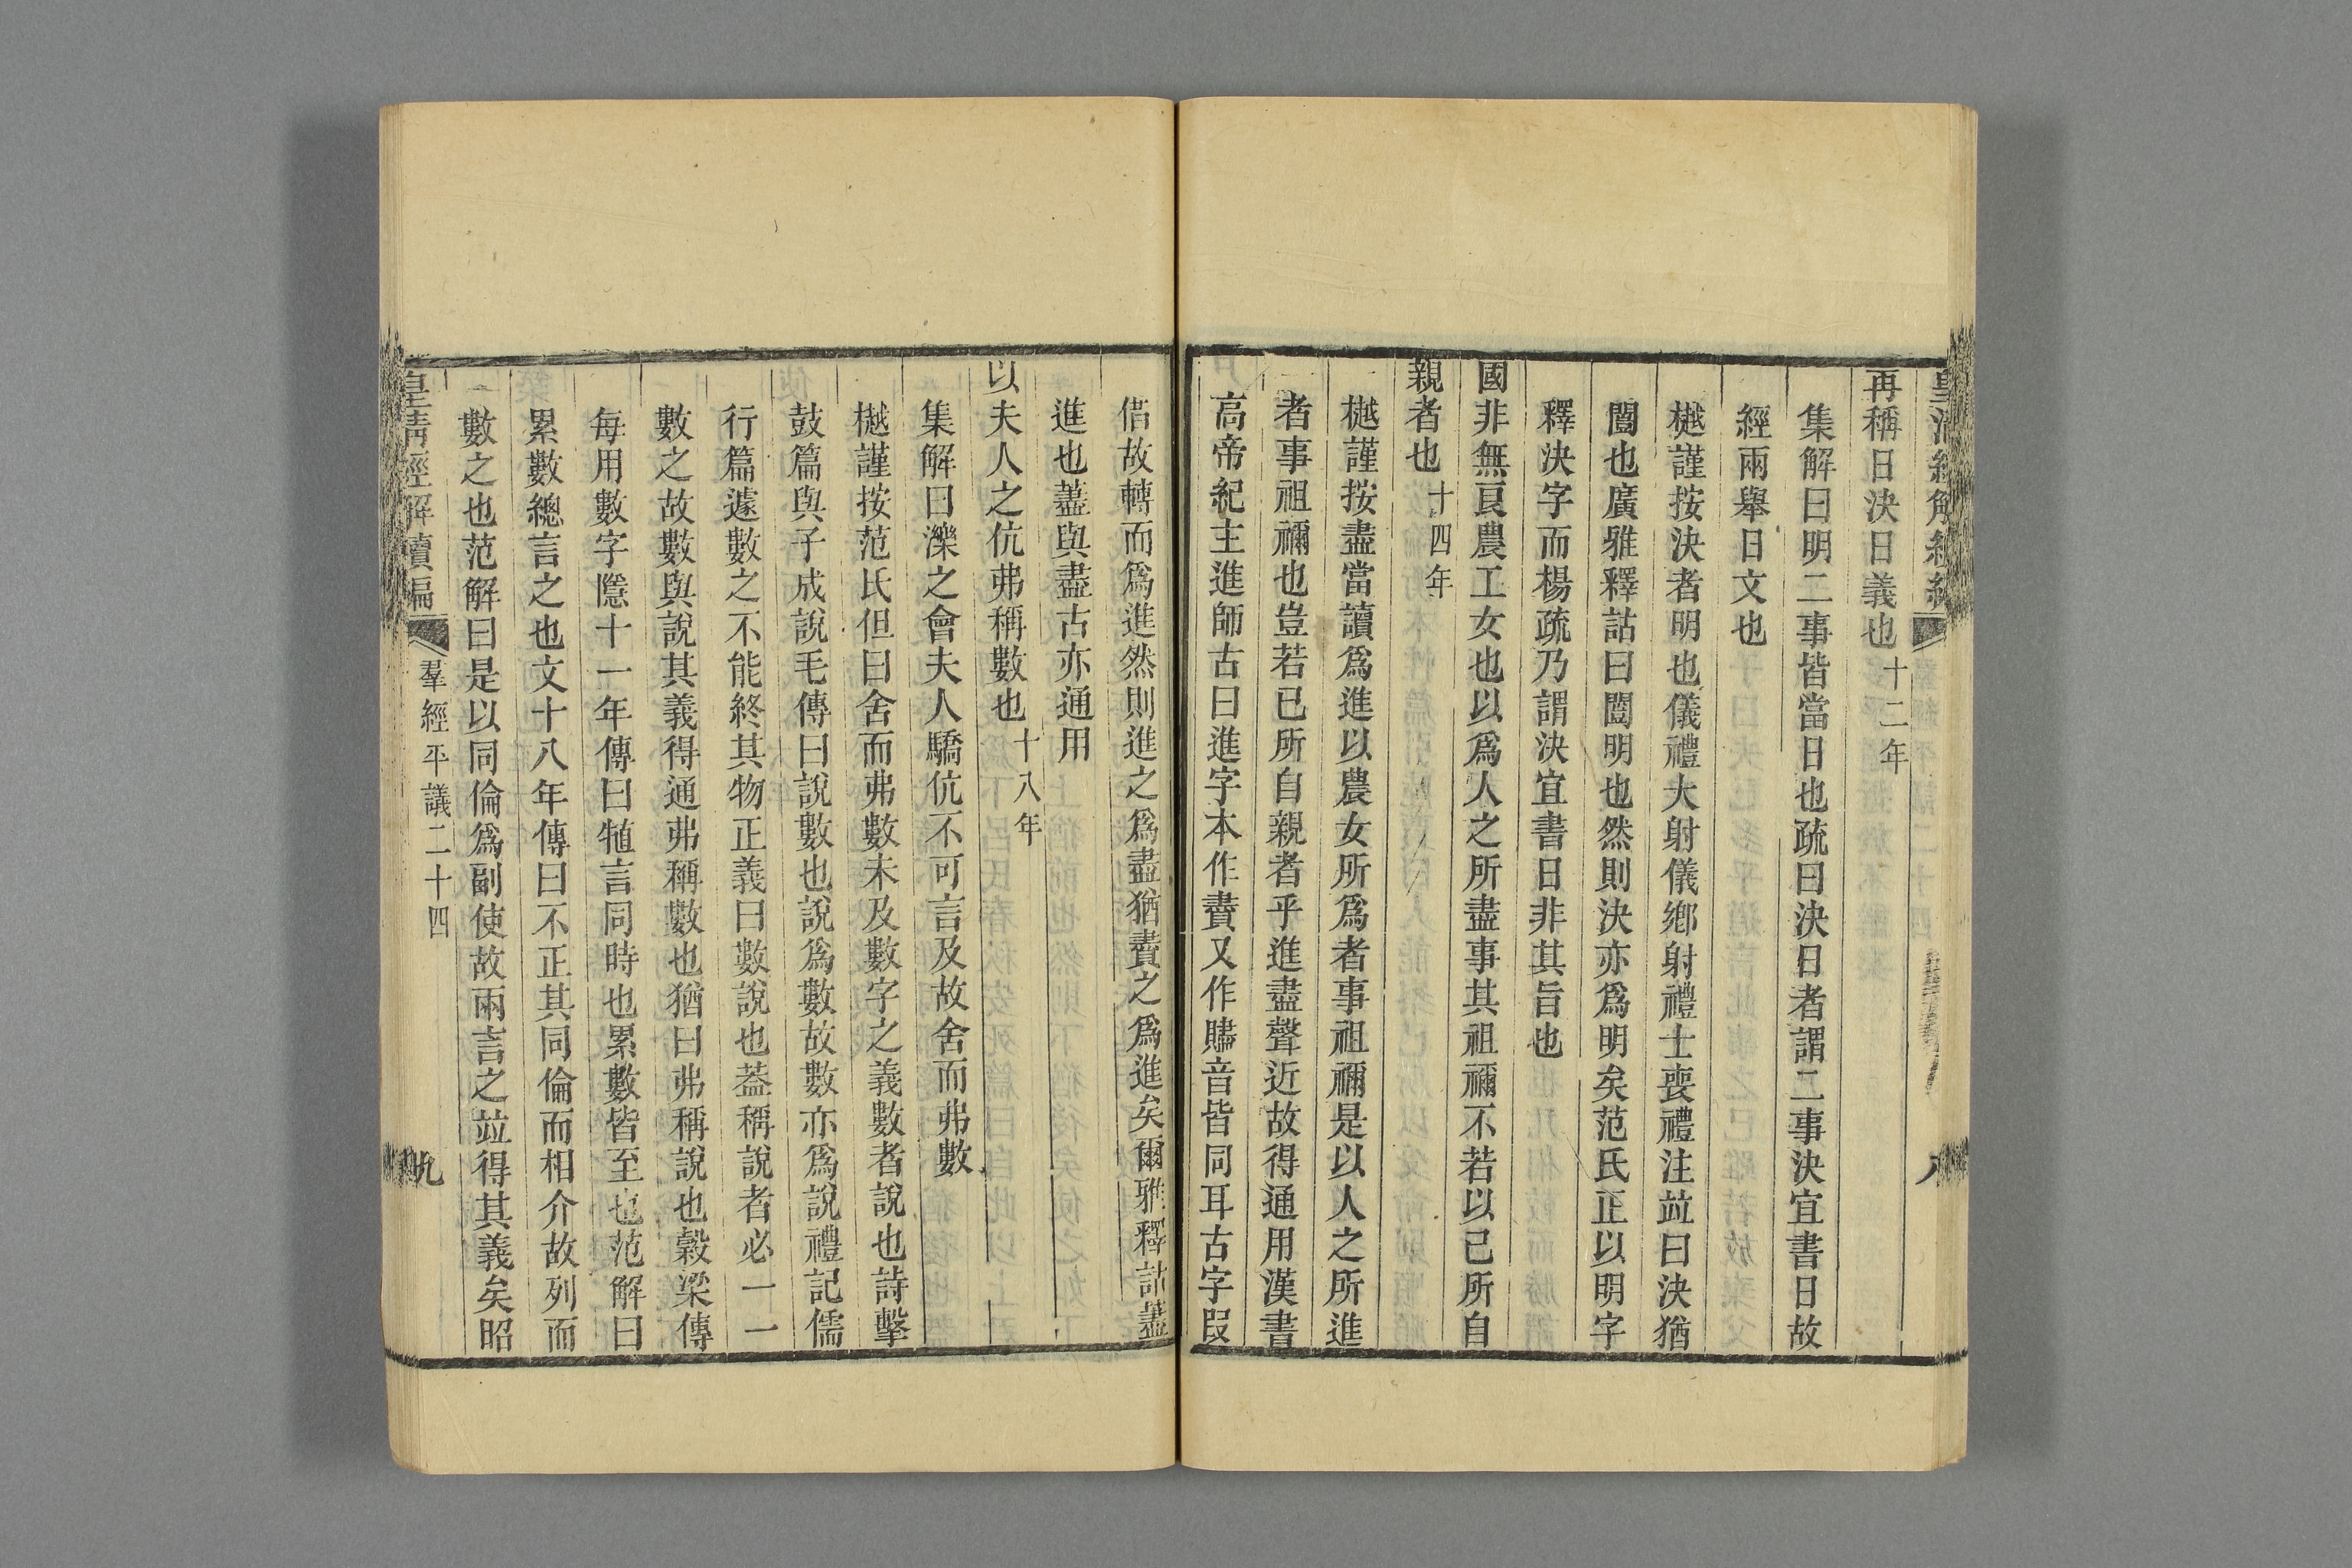 再稱日決日義也十二年
集解曰明二事皆當日也疏曰決日者謂二事決宜書日故
經兩舉日文也
樾謹按決者明也儀禮大射儀鄉射禮士喪禮注竝曰決猶
闓也廣雅釋詁曰闓明也然則決亦爲明矣范氏正以明字
釋決字而楊疏乃謂決宜書日非其旨也
國非無良農工女也以爲人之所盡事其祖禰不若以己所自
親者也十四年
樾謹按盡當讀爲進以農女所爲者事祖禰是以人之所進
者事祖禰也豈若已所自親者乎進盡聲近故得通用漢書
高帝紀主進師古曰進字本作賮又作贐音皆同耳古字叚
借故轉而爲進然則進之爲盡猶賮之爲進矣爾雅釋詁藎
進也藎與盡古亦通用
以夫人之伉弗稱數也十八年
集解曰濼之會夫人驕伉不可言及故舍而弗數
樾謹按范氏但曰舍而弗數未及數字之義數者說也詩擊
鼓篇與子成說毛傳曰說數也說爲數故數亦爲說禮記儒
行篇遽數之不能終其物正義曰數說也葢稱說者必一一
數之故數與說其義得通弗稱數也猶曰弗稱說也穀梁傳
每用數字隱十一年傳曰犆言同時也累數皆至也范解曰
累數總言之也文十八年傳曰不正其同倫而相介故列而
數之也范解曰是以同倫爲副使故兩言之竝得其義矣昭
皇清經解續編
羣經平議二十四
九